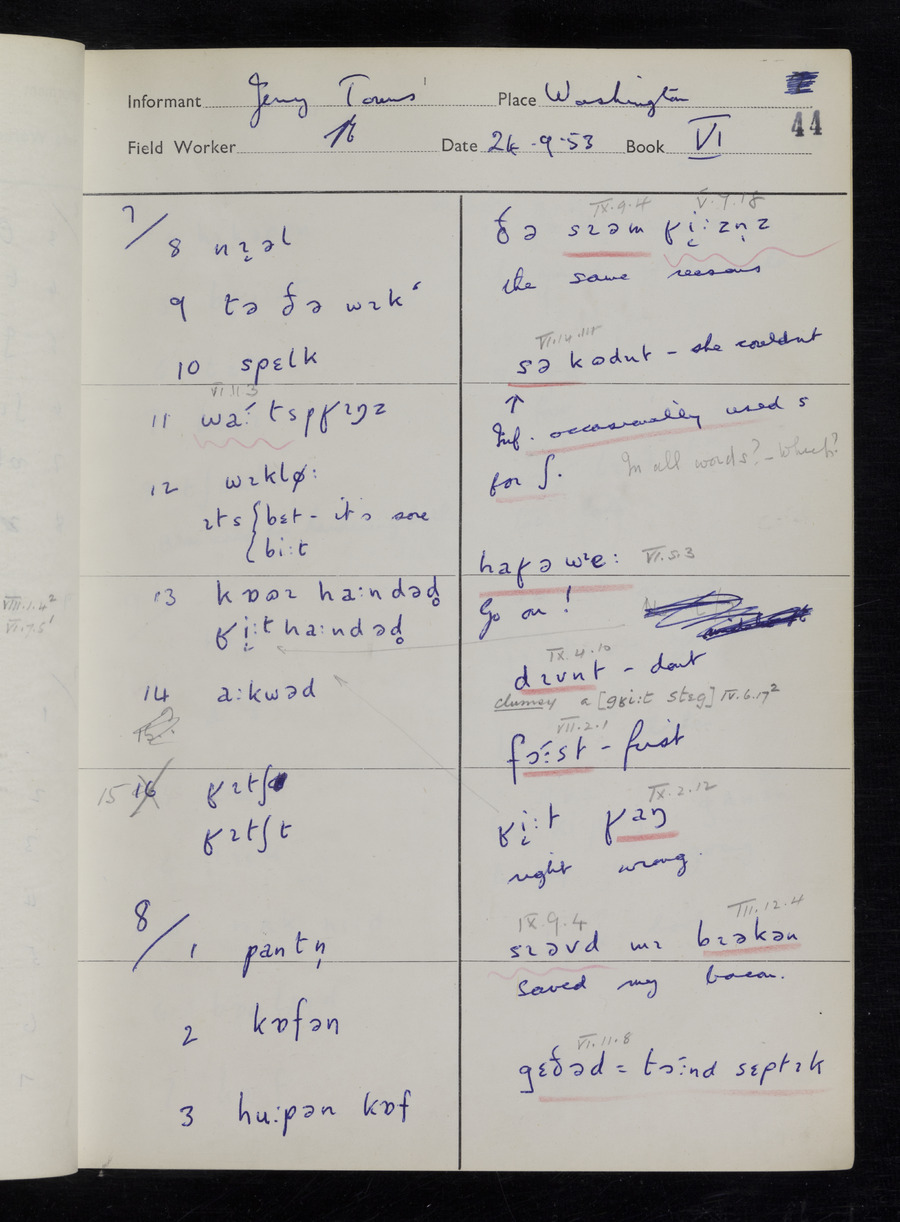 Informant Jerry Towns Place Washington
44
Field Worker Date 24.9.53 Book VI
7/
8 nɪ̨əl
9 tə ðə wɪkʿ
10 spɛlk
VI.11.3
11 waˑtspʁɪŋz
12 wɪkløː
ɪts { bɛt - it's sore
{ biːt
13 kɒəʁ haːndəd̥
ʁi̜ːt haːndəd̥
14 aːkwəd
15 16 ʁɪtʃ
ʁɪtʃt
8/
1 pantn̩
2 kɒfən
3 huːpən kɒf
VIII.1.4²
VI.7.5¹
IX.9.4 V.9.18
ðə sɪəm ʁi̜ːzn̩z
the same reasons
VI.14.14
sə kədnt - she couldnt
↑
Inf. occasionally used s
for ʃ. In all words? - Which?
haʁə wɪeː VI.5.3
Go on!
IX.4.10
dɪvnt - dont
clumsy a [gʁiːt stɛg] IV.6.17²
VII.2.1
fɔ́ːst - first
IX.2.12
ʁi̜ːt ʁaŋ
right wrong.
IX.9.4 III.12.4
sɪəvd mɪ bɪəkən
saved my bacon.
VI.11.8
gɛðəd = təːnd sɛptɪk